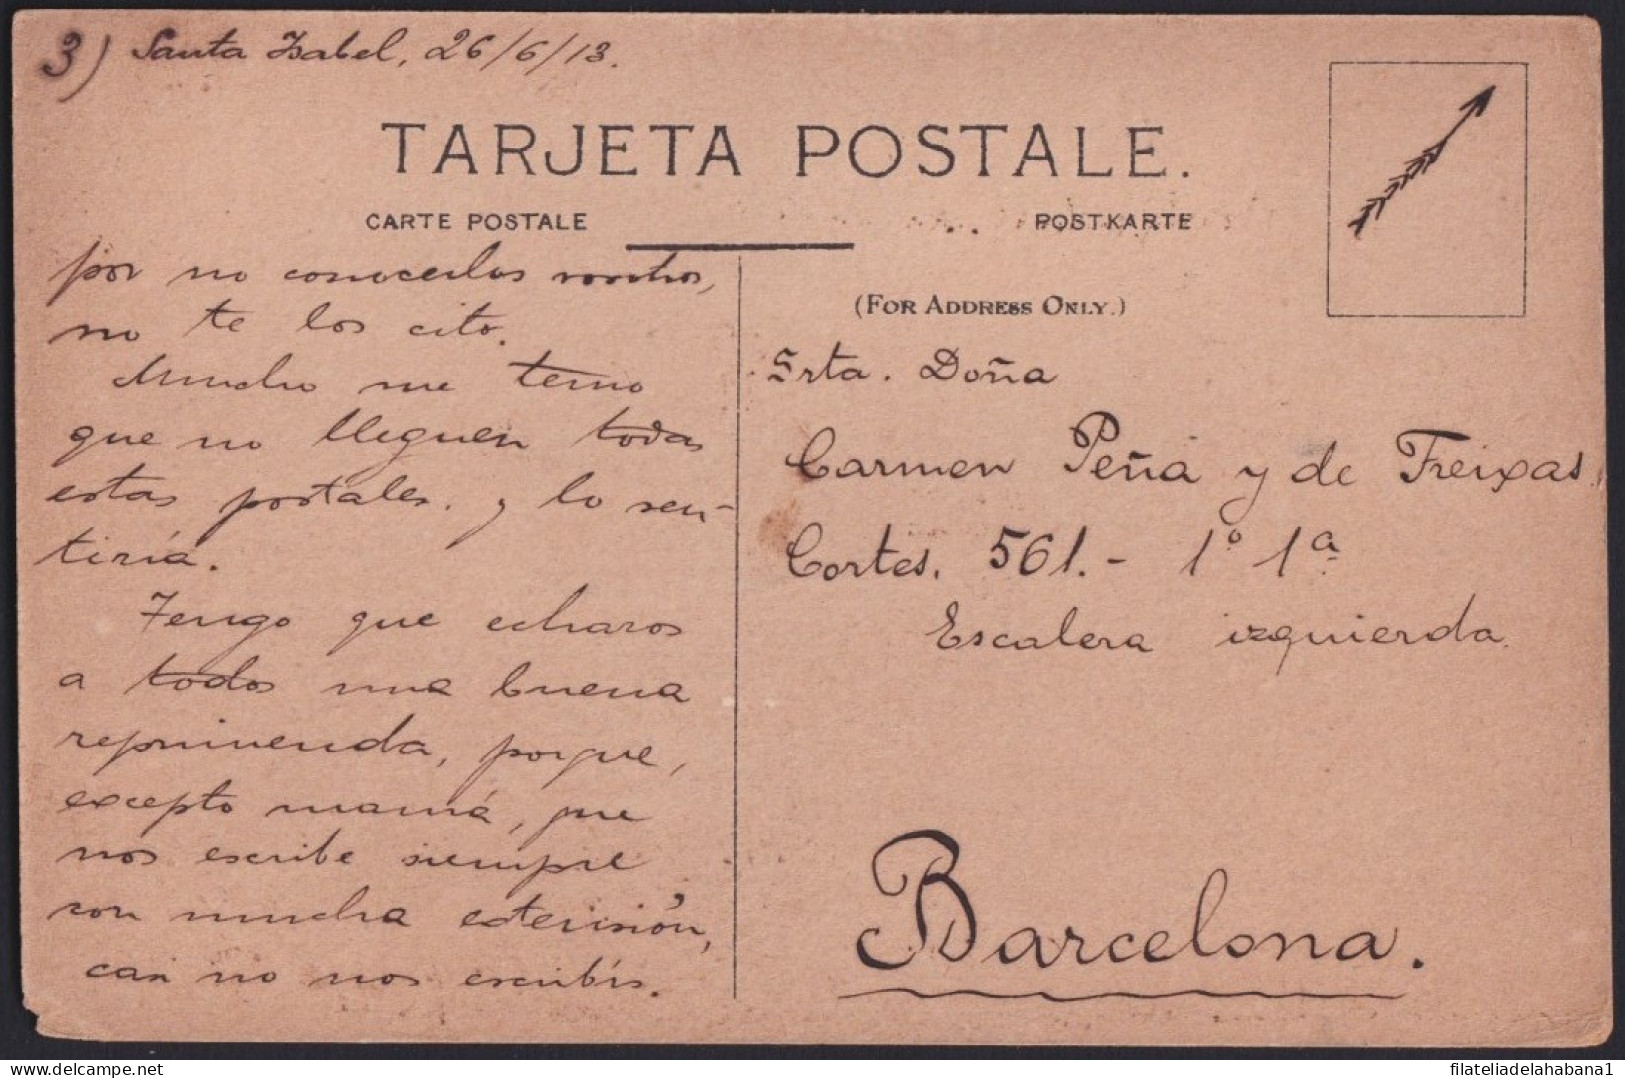 3) Santa Isabel, 26/6/13.
TARJETA POSTALE.
CARTE POSTALE
POSTKARTE
por no conocerlos vosotros,
no te los cito.
Mucho me temo
que no lleguen todas
estas postales. y lo sen-
tiría.
Tengo que echaros
a todos una buena
reprimenda, porque,
excepto mamá, que
nos escribe siempre
con mucha extensión,
casi no nos escribís.
(FOR ADDRESS ONLY.)
Srta. Doña
Carmen Peña y de Freixas
Cortes. 561.- 1º 1ª
Escalera izquierda.
Barcelona.
filateliadelahabana1